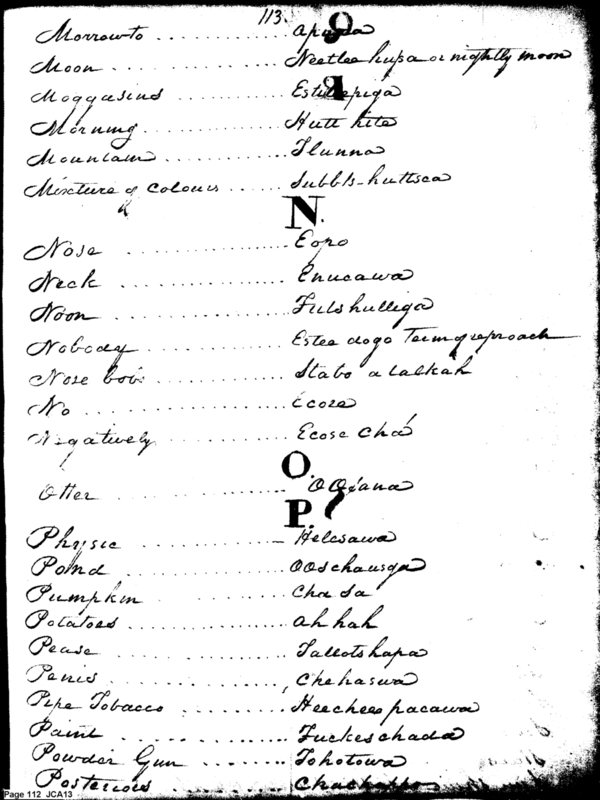 113.
Morrow to .......... Apu
Moon .......... Neetlee husa or nightly moon
Moggasins .......... Este
Morning .......... Hutt hite
Mountain .......... Ilunna
Mixture of Colours ...... Subbts-huttsca
N.
Nose .......... Eopo
Neck .......... Enucawa
Noon .......... Fulshulliga
Nobody .......... Estee dogo Term of reproach
Nose bob .......... Stabo a lalkah
No .......... Ecose
Negatively .......... Ecose Chá
O.
Otter .......... ana
P.
Physic .......... Helesawa
Pond .......... Ooschausga
Pumpkin .......... Cha Sa
Potatoes .......... Ah hah
Pease .......... Tallotshapa
Penis .......... Chehaswa
Pipe Tobacco .......... Heechee pacawa
Paint .......... Fuckeschada
Powder Gun ........ Tohotowa
Posteriors ........
Page 112 JCA13